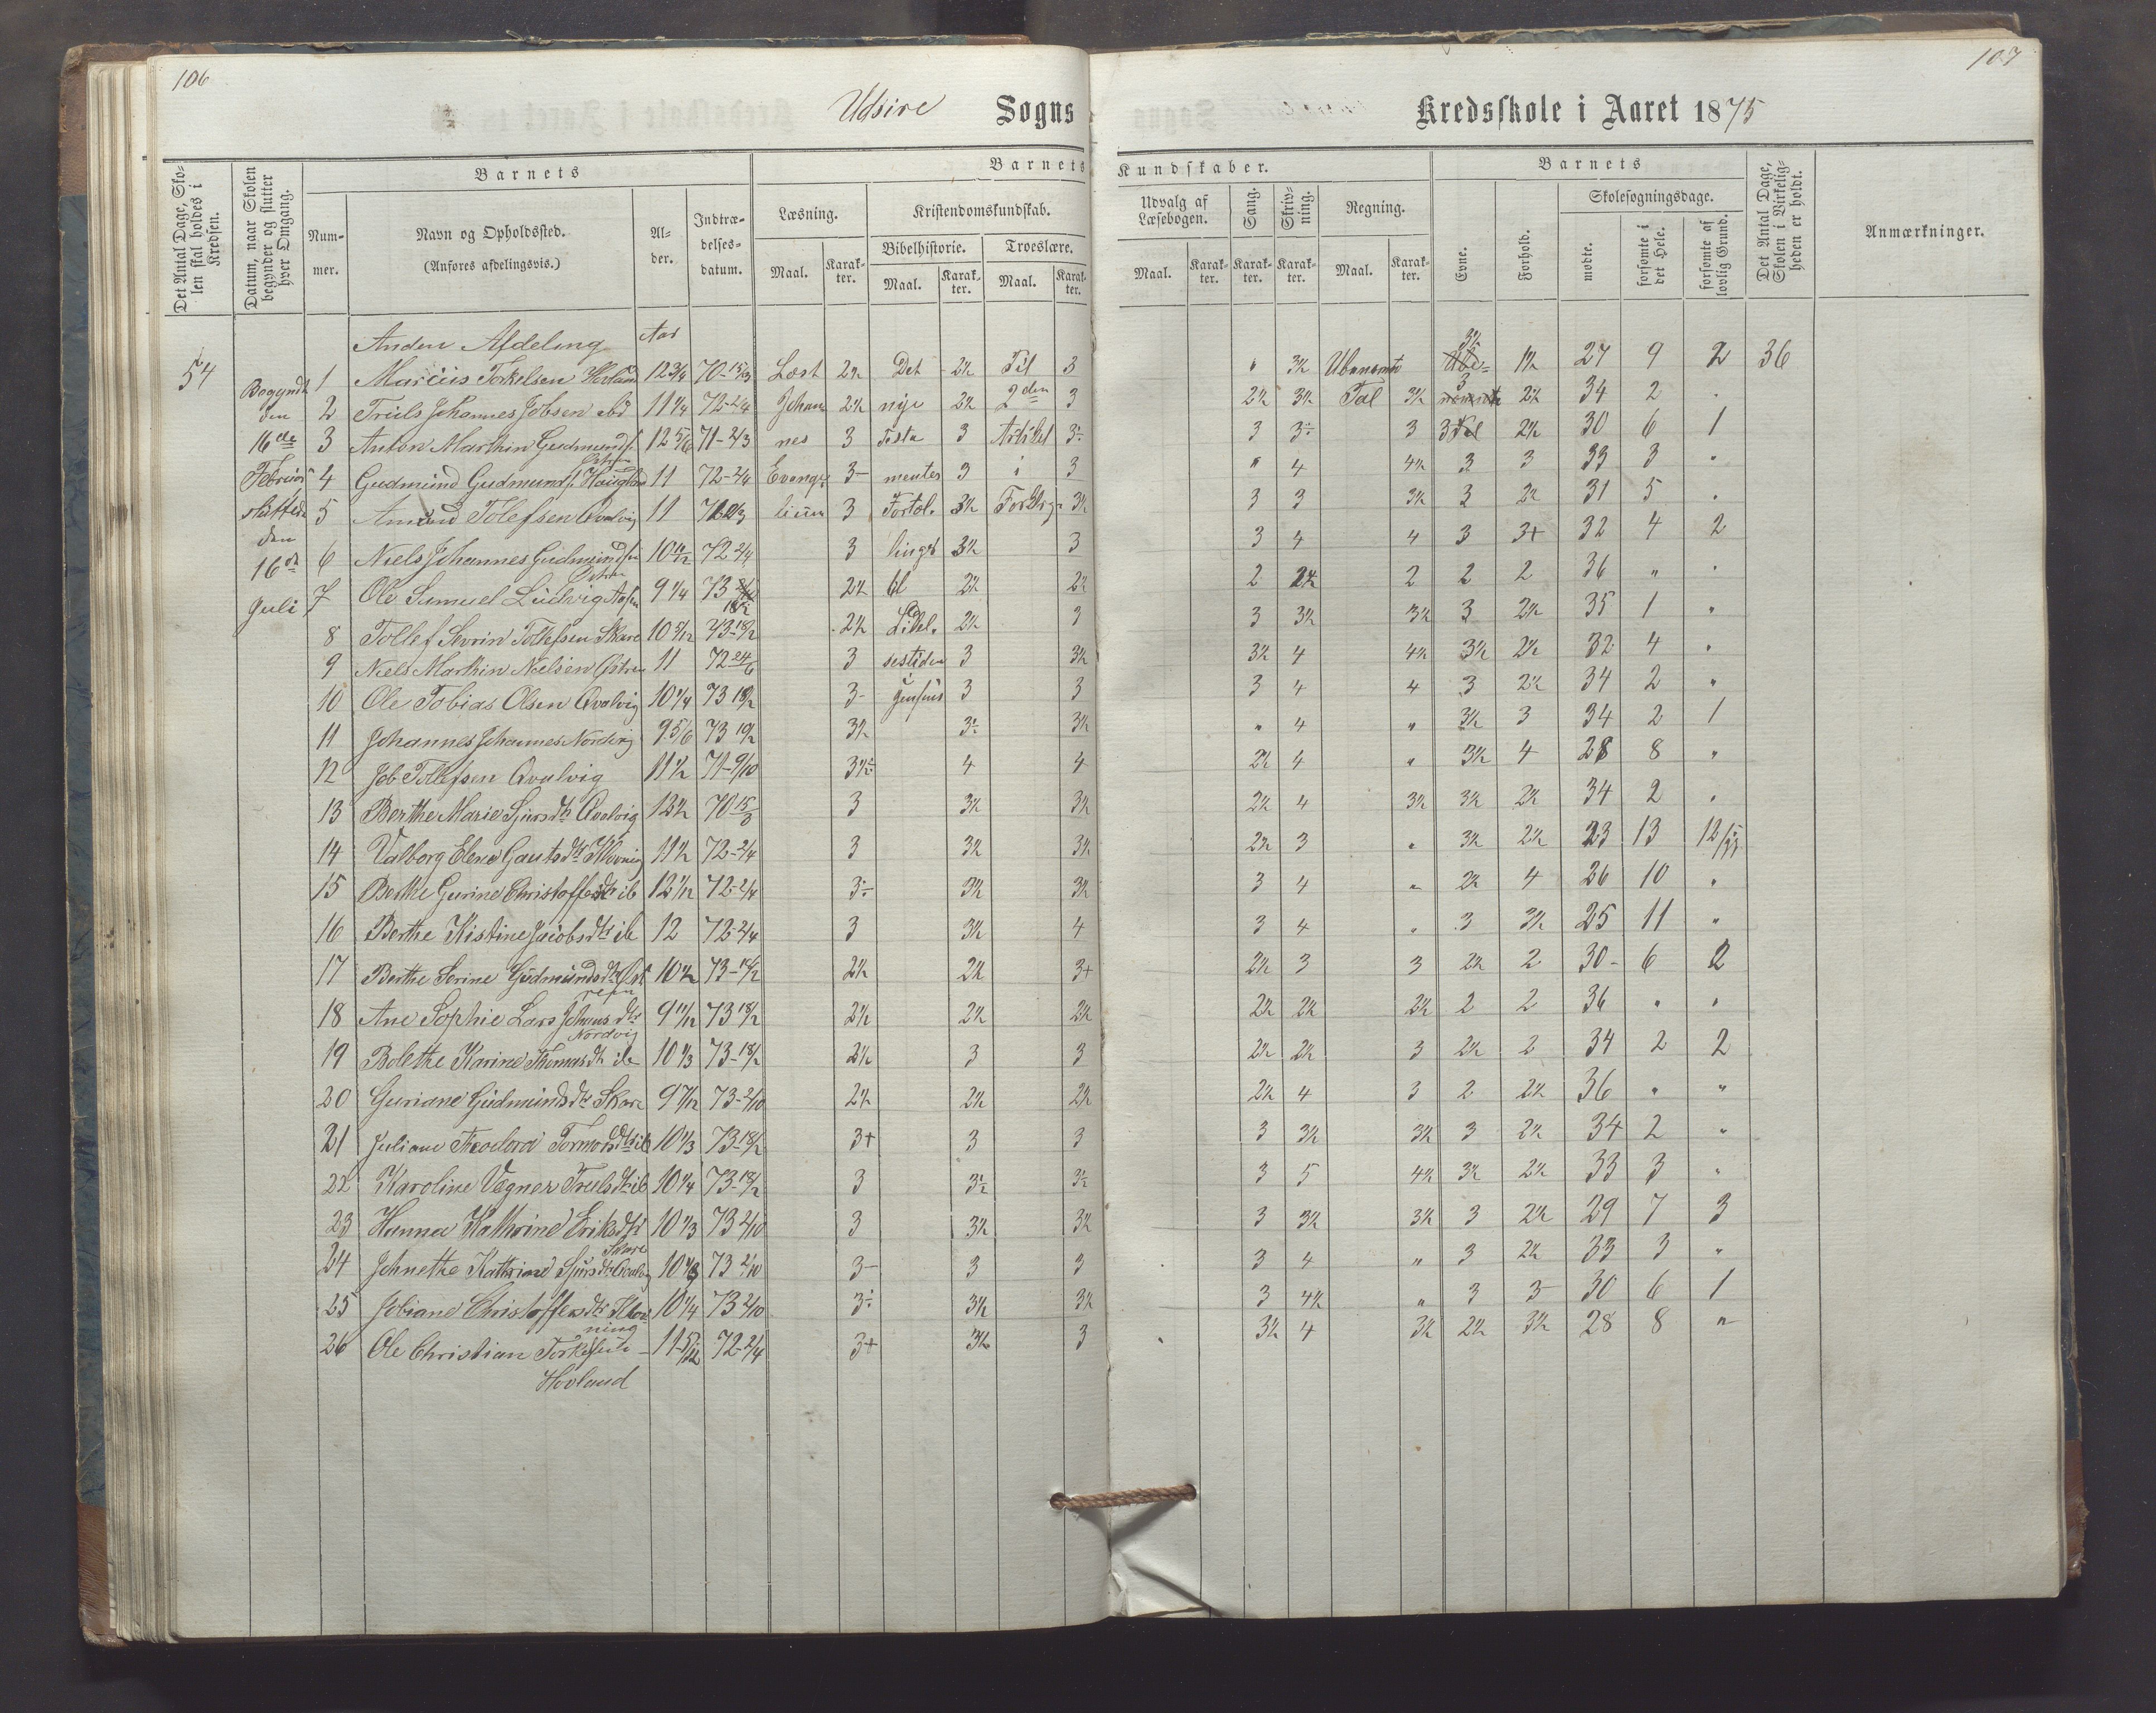 106
107
Udsire Sogns Kredsskole i Aaret 1875
Det Antal Dage, Skolen skal holdes i Kredsen.
Datum, naar Skolen begynder og slutter hver Omgang.
Barnets
Nummer.
Navn og Opholdssted.
(Anføres afdelingsvis.)
Alder.
Indtrædelsesdatum.
Barnets Kundskaber.
Læsning.
Maal. Karakter.
Kristendomskundskab.
Bibelhistorie. Maal. Karakter.
Troeslære. Maal. Karakter.
Udvalg af Læsebogen. Maal. Karakter.
Sang. Karakter.
Skrivning. Karakter.
Regning. Maal. Karakter.
Barnets
Evne.
Forhold.
Skolesøgningsdage.
mødte.
forsømte i det Hele.
forsømte af lovlig Grund.
Det Antal Dage, Skolen i Virkeligheden er holdt.
Anmærkninger.
Anden Afdeling Aar
54 Begyndt 1 Marcius Torkelsen Hovland 12 3/4 70-15/3 Læst 2½ Det 2½ Til 3 " 3½ Ubenævnte 3½ 1½ 27 9 2 36
den 2 Truls Johannes Jobsen ibd 11 1/4 72-2/4 Johan 2½ nye 2½ 2den 3 2½ 3½ Tal 3½ 3 2½ 34 2 "
16de 3 Anton Marthin Gudmunds. Østren 12 5/6 71-2/3 nes 3 Testa 3 Artikel 3÷ 3 3÷ 3 3 2½ 30 6 1
Februar 4 Gudmund Gudmunds. Haugland 11 72-2/4 Evange 3- mentes 3 i 3 " 4 4½ 3 3 33 3 "
sluttede 5 Amund Tolefsen Qvalvig 11 lium 3 Fortæl. 3½ Forklrg. 3½ 3 3 3½ 3 2½ 31 5 "
den 6 Niels Johannes Gudmundsen Østren 10 11/12 72 2/4 3 linger 3½ 3 3 4 4 3 3+ 32 4 2
16de
Juli 7 Ole Samuel Ludvig 9 1/4 73 18/2 2½ til 2½ 2½ 2 2½ 2 2 2 36 " "
8 Tollef Sevrin Tollefsen Skare 10 5/12 73-18/2 2½ Lidel. 2½ 3 3 3½ 3½ 3 2½ 35 1 "
9 Niels Marthin Nielsen Østren 11 72 24/6 3 sestiden 3 3½ 3½ 4 4½ 3½ 2½ 32 4 "
10 Ole Tobias Olsen Qvalvig 10 1/4 73 18/2 3- 3 3 3 4 4 3 2½ 34 2 "
11 Johannes Johannes Nordvig 9 5/6 73 19/2 3½ 3÷ 3½ " 4 " 3½ 3 34 2 1
12 Job Tollefsen Qvalvig 11½ 71-9/10 3½÷ 4 4 2½ 4 " 3½ 4 28 8 "
13 Berthe Marie Sjursdtr Qvalvig 12½ 70 15/3 3 3½ 3½ 2½ 4 3½ 3½ 2½ 34 2 "
14 Valborg Elene Gautsdtr Klovning 11½ 72-2/4 3 3½ 3½ 2½ 3 " 3½ 2½ 23 13
15 Berthe Gurine Christoffersdtr ib 12 1/12 72-2/4 3÷ 3½ 3½ 3 4 " 2½ 4 26 10 "
16 Berthe Kistine Jacobsdtr ib 12 72-2/4 3 3½ 4 3 4 " 3 3½ 25 11 "
17 Berthe Serine Gudmundsdtr Østren 10½ 73-18/2 2½ 2½ 3+ 2½ 3 3 2½ 2 30- 6 2
18 Ane Sophie Lars Johansdtr Nordvig 9 11/12 73 18/2 2½ 2½ 2½ 2½ 2½ 2½ 2 2 36 " "
19 Bolethe Karine Thomasdtr ib 10 1/3 73-18/2 2½ 3 3 2½ 2½ 3 2½ 2 34 2 2
20 Guriane Gudmundsdtr Skare 9 7/12 73-2/10 2½ 2½ 2½ 2½ 4 3 2 2½ 36 " "
21 Juliane Teodora Tormodsdtr ib 10 1/3 73-18/2 3+ 3 3 3 3½ 3½ 3 2½ 34 2 "
22 Karoline Vegner Trulsdtr ib 10 1/4 73-18/2 3 3½ 3½ 3 5 4½ 3½ 2½ 33 3 "
23 Hanna Kathrine Eriksdtr Skare 10 1/3 73 2/10 3 3½ 3½ 3 3½ 3½ 3 2½ 29 7 3
24 Johnethe Kathrine Sjursdtr Qvalvig 73 2/10 3- 3 3 3 4 " 3 2½ 33 3 "
25 Jobiane Christoffersdtr Klovning 10 1/4 73 2/10 3÷ 3½ 3½ 3 4½ " 3 3- 30 6 1
26 Ole Christian Torkelsen 11 5/12 72-2/4 3+ 3½ 3 3½ 4 3½ 2½ 3½ 28 8 "
Hovland